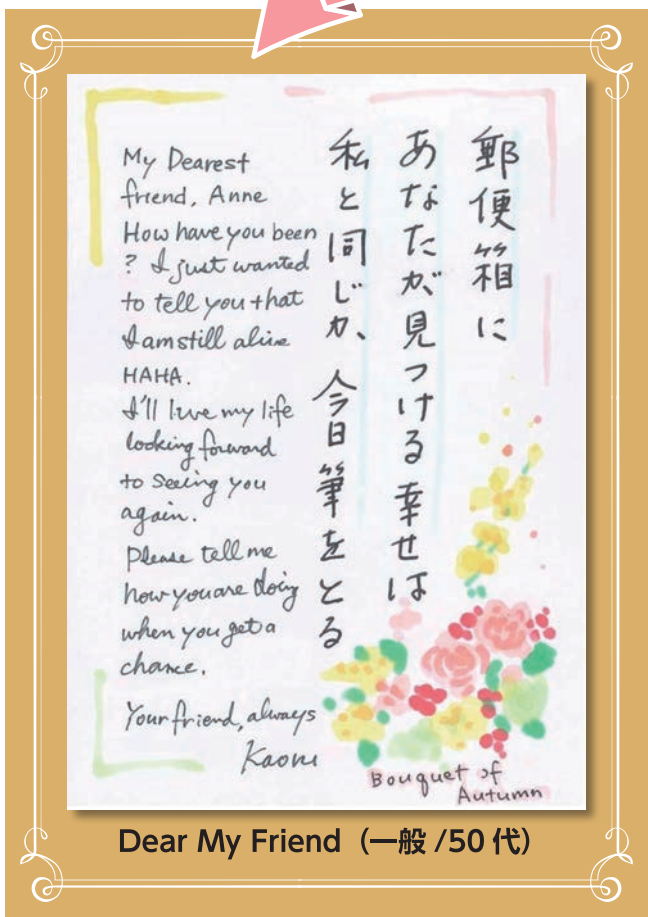 郵便箱に
あなたが見つける幸せは
私と同じか、今日筆をとる
My Dearest
friend, Anne
How have you been
? I just wanted
to tell you that
I am still alive
HAHA.
I'll live my life
looking forward
to seeing you
again.
Please tell me
how you are doing
when you get a
chance.
Your friend, always
Kaoru
Bouquet of
Autumn
Dear My Friend（一般 /50 代）